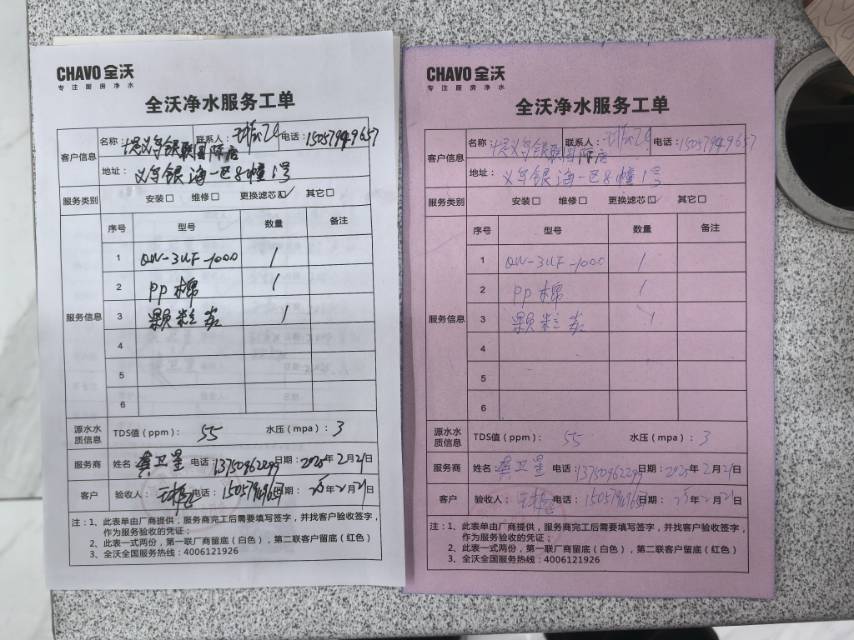 CHAVO 全沃
专注厨房净水
全沃净水服务工单
客户信息
名称: 义乌银 联国际店 联系人: 电话: 15057949657
地址: 义乌银海一区8幢1号
服务类别 安装□ 维修□ 更换滤芯☑ 其它□
服务信息
序号 型号 数量 备注
1 QW-3UF-1000 1
2 PP棉 1
3 颗粒炭 1
4
5
6
源水水质信息 TDS值(ppm): 55 水压(mpa): 3
服务商 姓名 龚卫星 电话 13750962299 日期: 2025年2月21日
客户 验收人: 电话: 15057949657 日期: 25年2月21日
注:1、此表单由厂商提供,服务商完工后需要填写签字,并找客户验收签字,
作为服务验收的凭证;
2、此表一式两份,第一联厂商留底(白色),第二联客户留底(红色)
3、全沃全国服务热线:4006121926
CHAVO 全沃
专注厨房净水
全沃净水服务工单
客户信息
名称: 义乌银 联国际店 联系人: 电话: 15057949657
地址: 义乌银海一区8幢1号
服务类别 安装□ 维修□ 更换滤芯☑ 其它□
服务信息
序号 型号 数量 备注
1 QW-3UF-1000 1
2 PP棉 1
3 颗粒炭 1
4
5
6
源水水质信息 TDS值(ppm): 55 水压(mpa): 3
服务商 姓名 龚卫星 电话 13750962299 日期: 2025年2月21日
客户 验收人: 电话: 15057949657 日期: 25年2月21日
注:1、此表单由厂商提供,服务商完工后需要填写签字,并找客户验收签字,
作为服务验收的凭证;
2、此表一式两份,第一联厂商留底(白色),第二联客户留底(红色)
3、全沃全国服务热线:4006121926